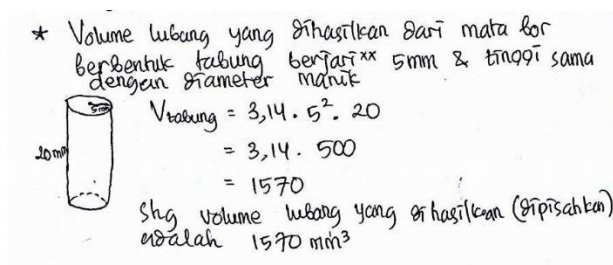 * Volume lubang yang dihasilkan dari mata bor
berbentuk tabung berjari** 5mm & tinggi sama
dengan diameter manik
5mm
20mm
Vtabung = 3,14 . 5². 20
= 3,14 . 500
= 1570
Shg volume lubang yang dihasilkan (dipisahkan)
adalah 1570 mm³